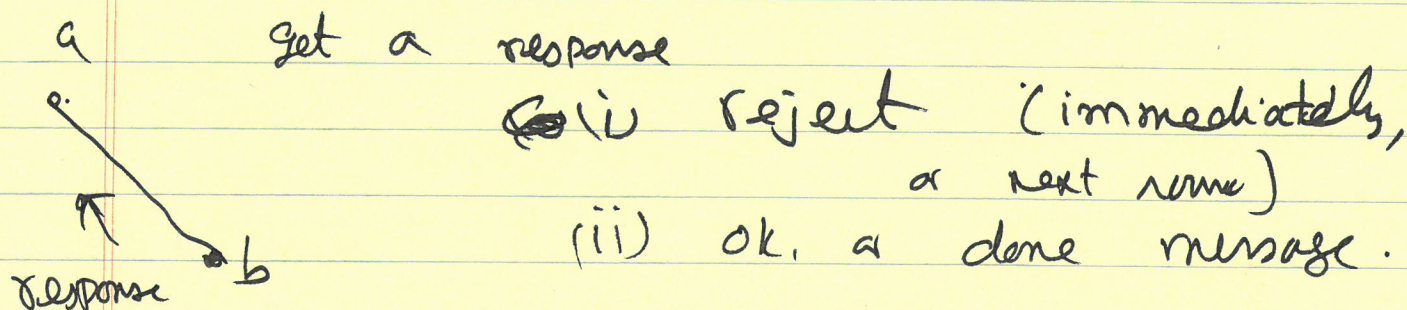 a get a response
(i) reject (immediately,
or next round)
(ii) ok. a done message.
b
response